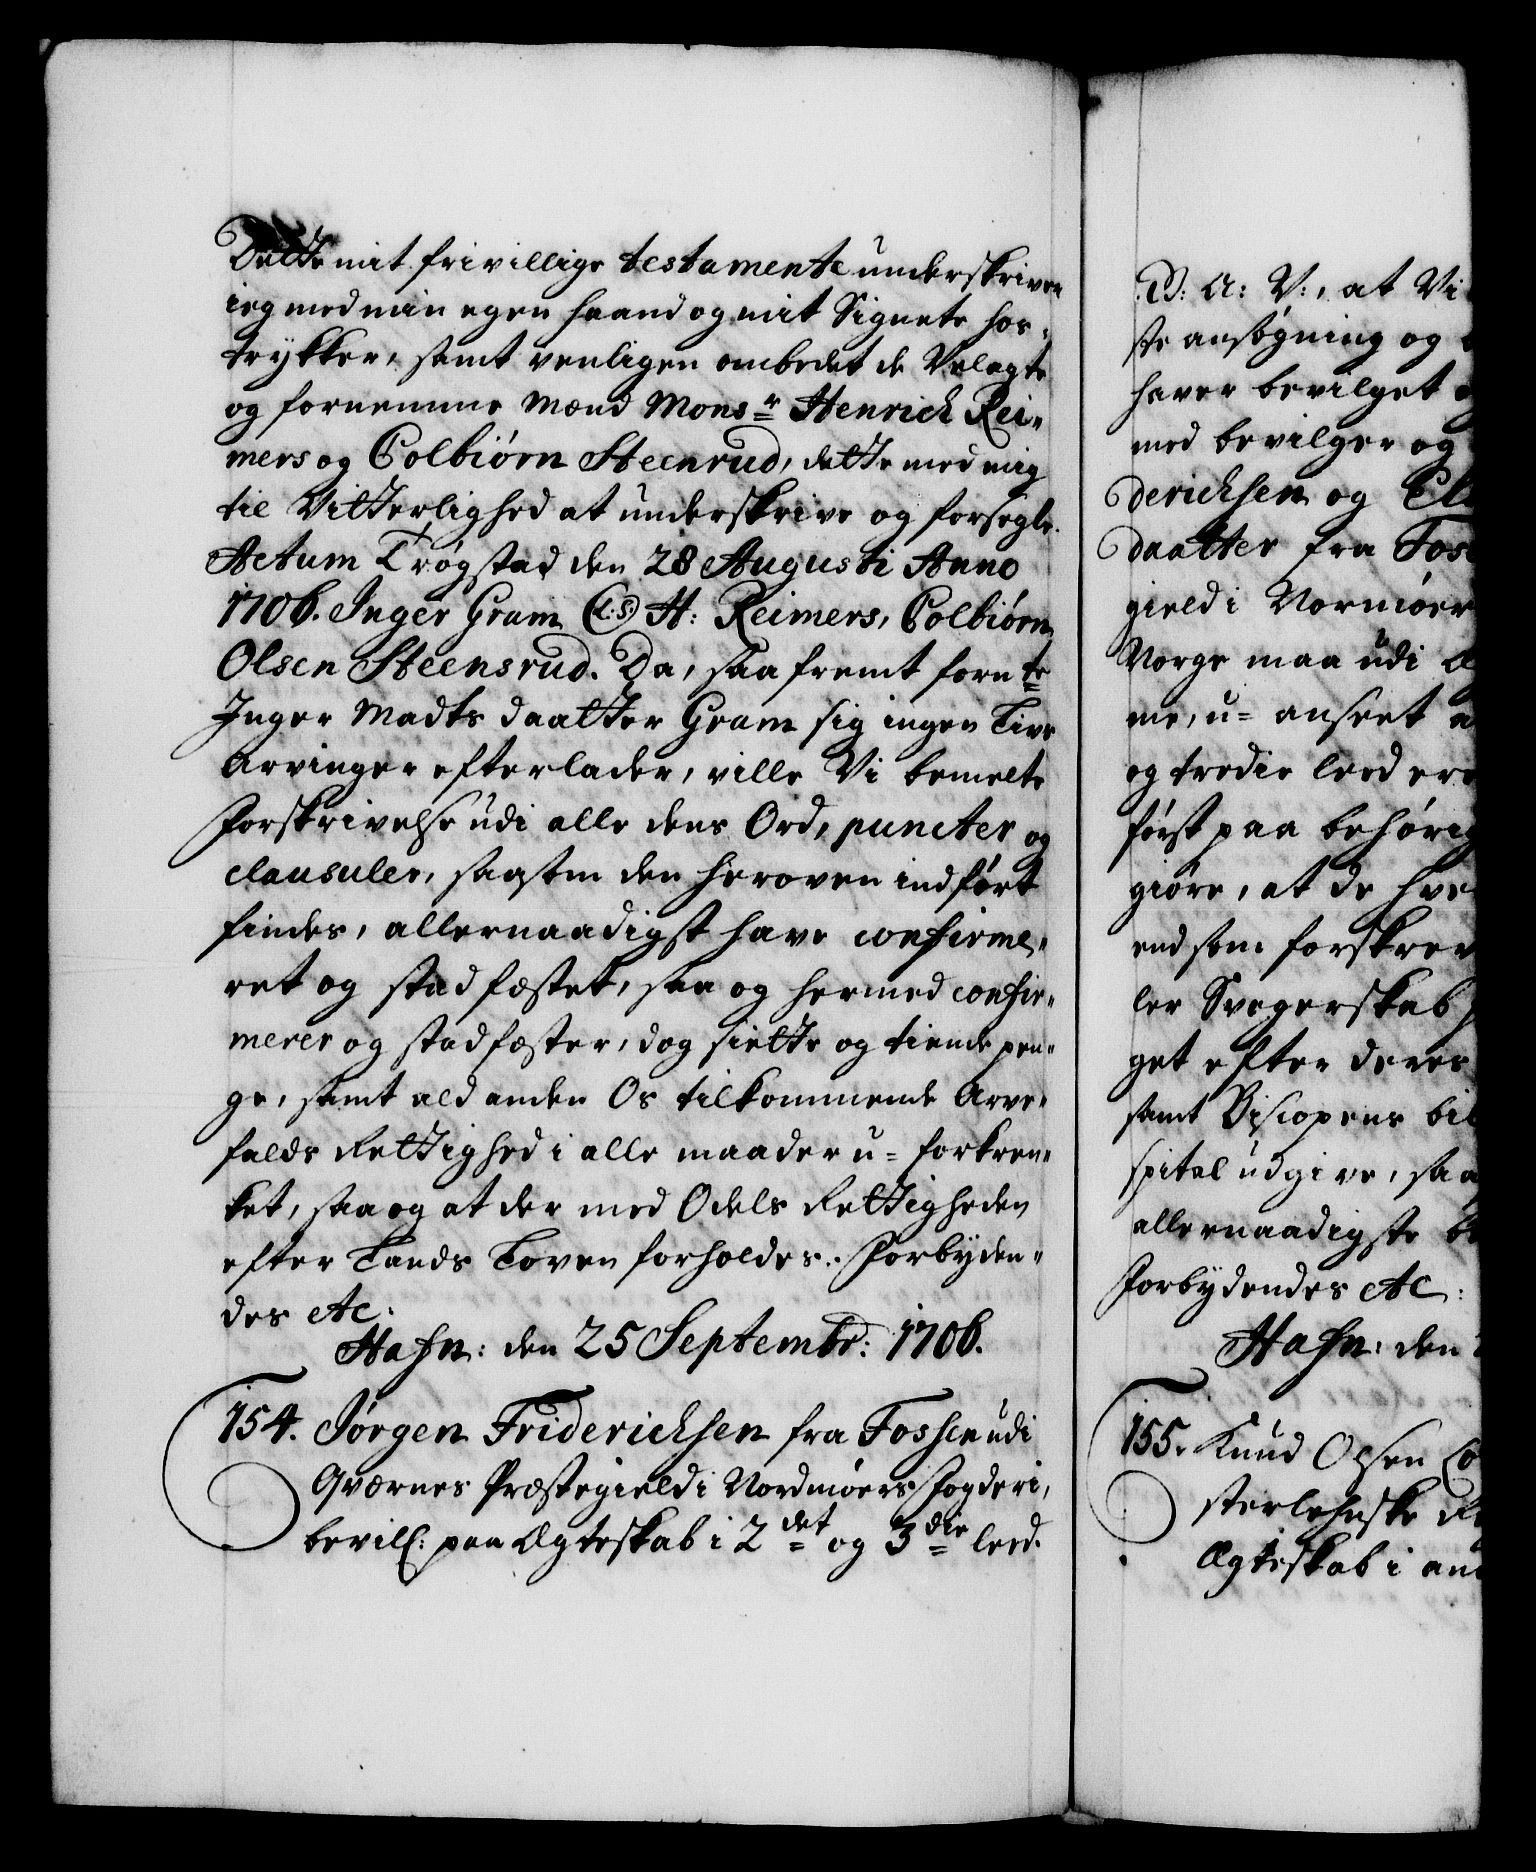 Dette mit frivillige testamente underskriver
ieg med min egen haand og mit Signete hos-
trykker, samt venligen ombedet de Velagte
og fornemme Mænd Mons.r Henrich Rei-
mers og Colbiørn Steenrud, dette med mig
til Vitterlighed at underskrive og forsegle.
Actum Trøgstad den 28 Augusti Anno
1706. Inger Gram (L:S:) H: Reimers, Colbiørn
Olsen Steensrud. Da, saa fremt forn.te
Inger Madts daatter Gram sig ingen Livs
Arvinger efterlader, ville Vi bemelte
Forskrivelse udi alle dens Ord, puncter og
clausuler, saasom den heroven indført
findes, allernaadigst have confirme-
ret og stadfæstet, saa og hermed confir-
merer og stadfæster, dog siette og tiende pen-
ge, samt ald anden Os tilkommende Arve-
falds Rettighed i alle maader u-forkren-
ket, saa og at der med Odels Rettigheden
efter Lands Loven forholdes. Forbyden-
des etc:
Hafn: den 25 Septembr: 1706.
154. Jørgen Friderichsen fra Fossen udi
Qværnes Præstegield i Nordmøers Fogderi,
bevill: paa Ægteskab i 2det og 3die leed.
V: A: V:, at Vi
ste ansøgning og
haver bevilget
med bevilger og
derichsen og
daatter fra Foss
gield i Normøer
Norge maa udi
me, u-anseet
og tredie leed ere
først paa behørig
giøre, at de
end som forskrev
ler Svogerskab
get efter deres
samt Biscopens
spital udgive, saa
allernaadigste
Forbydendes etc:
Hafn: den
155. Knud Olsen
sterlehnske
Ægteskab i